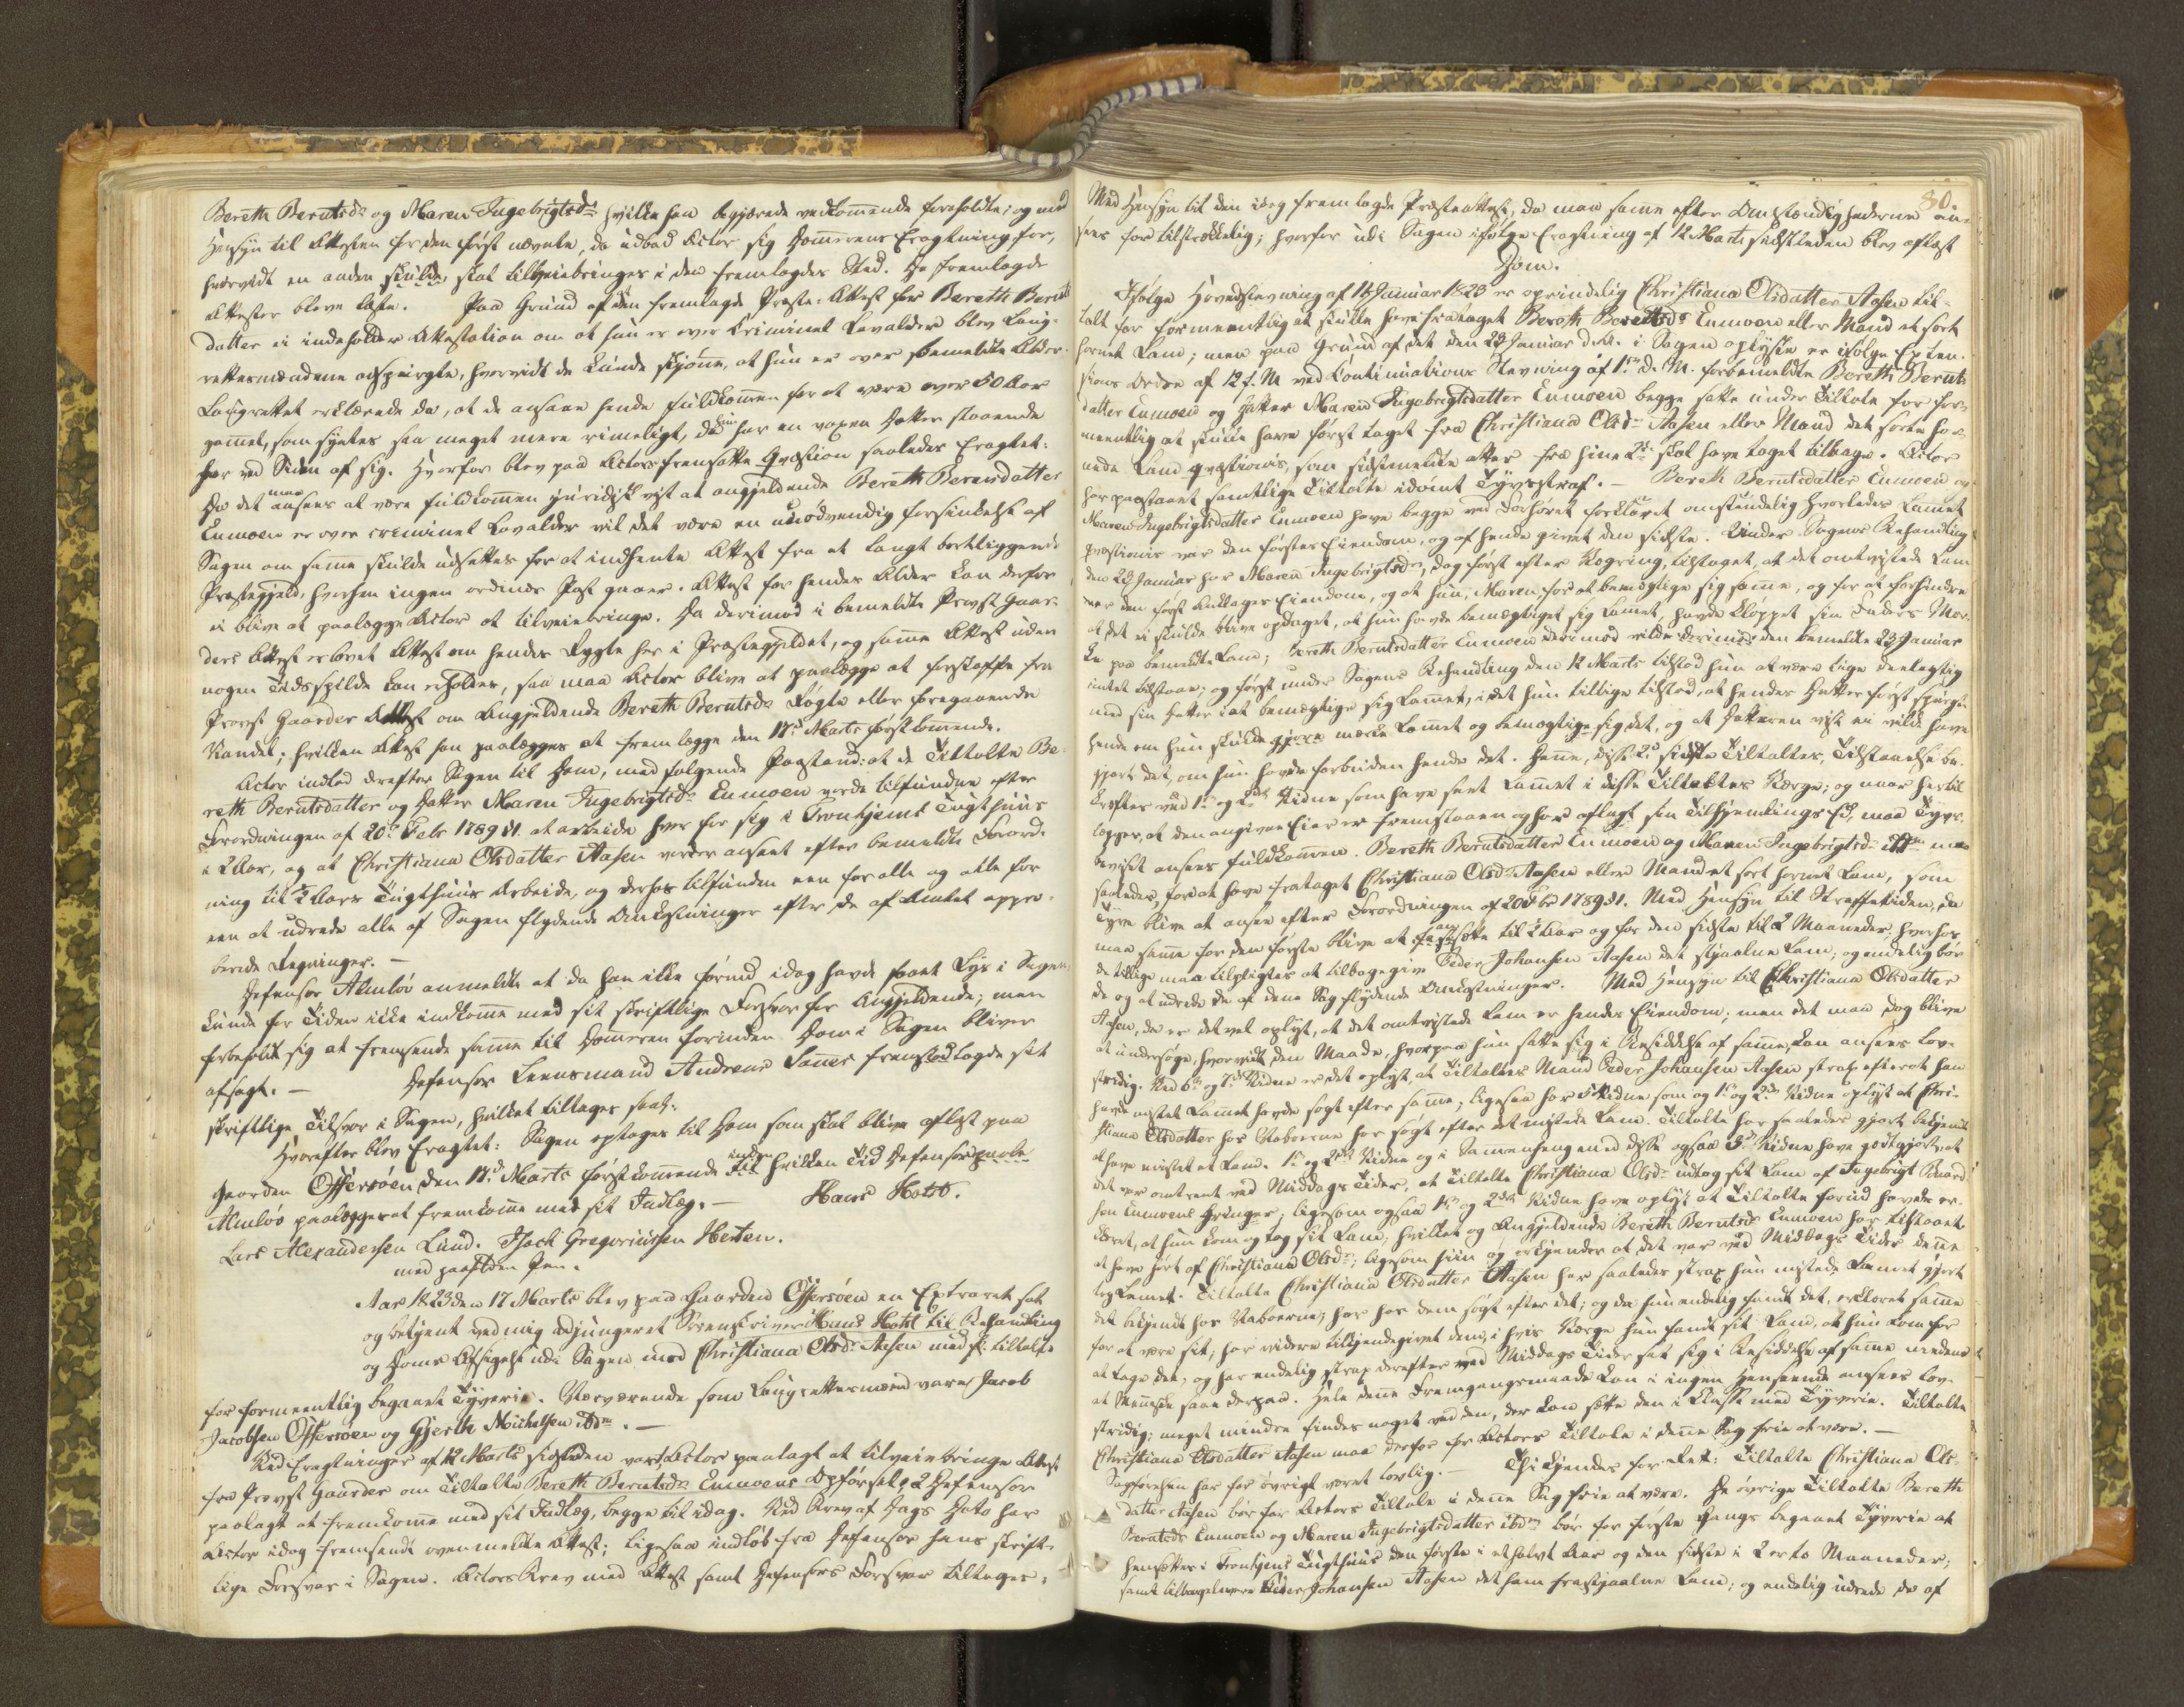 Bereth Berntsdr og Maren Ingebrigtsdr hvilke han begjærede vedkommende foreholdte; og med
Hensyn til Attesten for den først nævnte, da udbad Actor sig Dommerens Eragtning for,
hvorvidt en anden skulde skal tilveiebringes i den fremlagdes Sted. De fremlagde
Attester bleve læste. Paa Grund af at den fremlagde Præste-Attest for Bereth Bernts
datter ei indeholder Attestation om at hun er over Criminel Lavalder blev Laug-
rettesmændene adspurgte, hvorvidt de kunde skjønne, at hun er over bemeldte Alder.
Laugrettet erklærede da, at de ansaae hende fuldkommen for at være over 50 Aar
gammel, som syntes saa meget mere rimeligt, da hun har en voxen Datter staaende
her ved Siden af sig. Hvorfor blev paa Actors fremsatte Qvæstion saaledes Eragtet:
Da det maa ansees at være fuldkommen juridisk vist at angjeldende Bereth Berntsdatter
Eumoen er over criminel Lavalder vil det være en unødvendig Forsinkelse af
Sagen om samme skulde udsættes for at indhente Attest fra et langt bortliggende
Præstegjeld, hvorhen ingen ordinær Post gaaer. Attest for hendes Alder kan derfor
ei blive at paalægge Actor at tilveiebringe. Da derimod i bemeldte Provst Gaar-
ders Attest er lovet Attest om hendes Rygte her i Præstegjeldet, og samme Attest uden
nogen Tidsspilde kan erholdes, saa maa Actor blive at paalægge at forskaffe fra
Provst Gaarder Attest om Angjeldende Bereth Berntsdr Rygte eller foregaaende
Vandel; hvilken Attest han paalægges at fremlægge den 17de Marts førstkommende.
Actor indlod derefter Sagen til Dom, med følgende Paastand: at de Tiltalte Be-
reth Berntsdatter og Datter Maren Ingebrigtsdr Eumoen vorde tilfundne efter
Forordningen af 20de Febr 1789 § 1. at arbeide hver for sig i Tronhjems Tugthuus
i 2 Aar, og at Christiana Olsdatter Aasen vorder anseet efter bemeldte Forord-
ning til 2 Aars Tugthuus Arbeide, og derhos tilfunden een for alle og alle for
een at udrede alle af Sagen flydende Omkostninger efter de af Amtet appro-
berede Regninger. –
Defensor Almløv anmeldte at da han ikke førend idag havde faaet Lys i Sagen,
kunde for Tiden ikke indkomme med sit skriftlige Forsvar for Angjeldende; men
forbeholdt sig at fremsende samme til Dommeren forinden Dom i Sagen bliver
afsagt. – Defensor Leensmand Andreas Sannes fremlagde sit
skriftlige Tilsvar i Sagen, hvilket tiltages saal:
Hvorefter blev Eragtet: Sagen optages til Dom som skal blive aflest paa
Gaarden Offersøen den 17de Marts førstkommende inden hvilken Tid Defensor
Almløv paalægges at fremkomme med sit Indlæg. – Hans Holst.
Lars Alexandersen Lund. Isach Gregoriussen Hesten.
med paaholden Pen.
Aar 1823 den 17 Marts blev paa Gaarden Offersøen en Extraret sat
og betjent ved mig adjungeret Sorenskriver Hans Holst til Behandling
og Doms Afsigelse udi Sagen mod Christiana Olsdr Aasen med fl: tiltalte
for formeentlig begaaet Tyverie. Nærværende som Laugrettesmænd vare Jacob
Jacobsen Offersøen og Gjerth Michelsen ibdm. –
Ved Eragtninger af 12 Marts sidstleden var Actor paalagt at tilveiebringe Attest
fra Provst Gaarder om Tiltalte Bereth Berntsdr Eumoens Opførsel, & Defensor
paalagt at fremkomme med sit Indlæg, begge til idag. Ved Brev af Dags Dato har
Actor idag fremsendt ovenmeldte Attest; ligesaa indløb fra Defensor hans skrift-
lige Forsvar i Sagen. Actors Brev med Attest samt Defensors Forsvar tiltages.
80.
Med Hensyn til den idag fremlagde Præsteattest, da maa samme efter Omstændighederne an-
sees for tilstrækkelig; hvorfor udi Sagen ifølge Eragtning af 12 Marts sidstleden blev aflæst
Dom.
Ifølge Hovedstevning af 14 Januar 1823 er oprindelig Christiana Olsdatter Aasen til-
talt for formeentlig at skulle have frataget Bereth Berntsdr Eumoen eller Mand et sort
hornet Lam; men paa Grund af det den 23 Januar d. A. i Sagen oplyste er ifølge Exten-
sions Ordre af 12 f. M. ved Continuations Stevning af 1ste d. M. forbemeldte Bereth Bernts
datter Eumoen og Datter Maren Ingebrigtsdatter Eumoen begge satte under Tiltale for for-
meentlig at skulle have først taget fra Christiana Olsdr Aasen eller Mand det sorte hor-
nede Lam qvæstionis, som sidstmeldte atter fra hine 2de skal have taget tilbage. Actor
har paastaaet samtlige Tiltalte idømt Tyvsstraf. – Bereth Berntsdatter Eumoen og
Maren Ingebrigtsdatter Eumoen have begge ved Forhøret forklaret omstændelig hvorledes Lammet
qvæstionis var den førstes Eiendom, og af hende givet den sidste. Under Sagens Behandling
den 23 Januar har Maren Ingebrigtsdr, dog først efter Nøgring, tilstaaet, at det omtvistede Lam
var den først Anklagers Eiendom, og at hun, Maren, for at bemægtige sig samme, og for at forhindre
at det ei skulde blive opdaget, at hun havde bemægtiget sig Lammet, havde kloppet sin Faders Mær-
ke paa bemeldte Lam; Bereth Berntsdatter Eumoen derimod vilde den bemeldte 23 Januar
intet tilstaae; og først under Sagens Behandling den 12 Marts tilstod hun at være lige deelagtig
med sin Datter i at bemægtige sig Lammet, idet hun tillige tilstod, at hendes Datter først spurgte
hende om hun skulde gjøre mærke Lammet og bemægtige sig det, og at Datteren vist ei vilde have
gjort det, om hun havde forbuden hende det. Denne, disse 2de sidste Tiltaltes, Tilstaaelse be-
kræftes ved 1ste og 2det Vidne som have seet Lammet i disse Tiltaltes Værge; og naar hertil
lægges, at den angivne Eier er fremstaaen og har aflagt sin Tilhjemlings Ed, maa Tyvs-
beviset ansees fuldkommen. Bereth Berntsdatter Eumoen og Maren Ingebrigtsdr ibdm maa
saaledes, for at have frataget Christiana Olsdr Aasen eller Mand et sort hornet Lam, som
Tyve blive at ansee efter Forordningen af 20 Febr 1789 § 1. Med Hensyn til Straffetiden, da
maa samme for den første blive at fastsætte til ½ Aar og for den sidste til 2 Maaneder; hvorhos
de tillige maa tilpligtes at tilbagegive Peder Johansen Aasen det stjaalne Lam; og endelig bør
de og at udrede de af denne Sag flydende Omkostninger. Med Hensyn til Christiana Olsdatter
Aasen, da er det vel oplyst, at det omtvistede Lam er hendes Eiendom; men det maa dog blive
at undersøge, hvorvidt den Maade, hvorpaa hun satte sig i Besiddelse af samme, kan ansees lov-
stridig. Ved 6te og 7de Vidne er det oplyst, at Tiltaltes Mand Peder Johansen Aasen strax efterat han
havde mistet Lammet havde søgt efter samme; ligesaa har Vidne som og 1ste og 2det Vidne oplyst at Chri-
stiana Olsdatter hos Naboerne har søgt efter det mistede Lam. Tiltalte har saaledes gjort bekjendt
at have mistet et Lam. 1ste og 2det Vidne og i Sammenheng med disse ogsaa 3die Vidne have godtgjort, at
det var omtrent ved Middags Tider, at Tiltalte Christiana Olsdr udtog sit Lam af Ingebrigt Baard-
sen Eumoens Gringer; ligesom ogsaa 1ste og 2det Vidne have oplyst at Tiltalte forud havde er-
klæret, at hun kom og tog sit Lam, hvilket og Angjeldende Bereth Berntsdr Eumoen har tilstaaet
at have hørt af Christiana Olsdr; ligesom hun og erkjender at det var ved Middags Tider denne
tog Lammet. Tiltalte Christiana Olsdatter Aasen har saaledes strax hun mistede Lammet gjort
det bekjendt hos Naboerne, har hos dem søgt efter det; og da hun endelig fandt det, erklæret samme
for at være sit; har videre tilkjendegivet dem, i hvis Værge hun fandt sit Lam, at hun kom for
at tage det; og har endelig strax derefter ved Middags Tider sat sig i Besiddelse af samme medens
at Mennesker saae derpaa. Hele denne Fremgangsmaade kan i ingen Henseende ansees lov-
stridig; meget mindre findes noget ved den, der kan sætte den i Classe med Tyverie. Tiltalte
Christiana Olsdatter Aasen maa derfor for Actors Tiltale i denne Sag frie at være. –
Sagførelsen har for øvrigt været lovlig. Thi kjendes for Ret: Tiltalte Christiana Ols-
datter Aasen bør for Actors Tiltale i denne Sag frie at være. De øvrige Tiltalte Bereth
Berntsdr Eumoen og Maren Ingebrigtsdatter ibdm bør for første Gangs begaaet Tyverie at
hensættes i Tronhjems Tugthuus den første i et halvt Aar og den sidste i 2 er to Maaneder;
samt tilbagelevere Peder Johansen Aasen det ham frastjaalne Lam; og endelig udrede de af